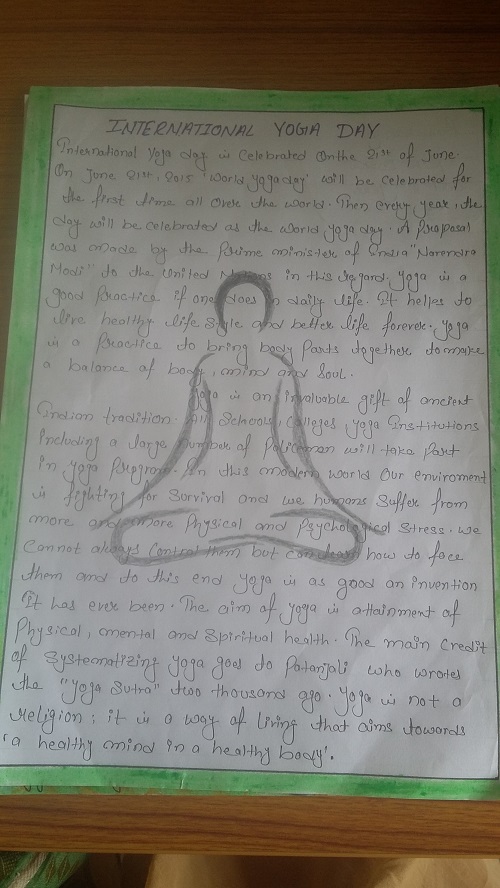 INTERNATIONAL YOGA DAY
International Yoga day is Celebrated On the 21st of June.
On June 21st, 2015 'World Yoga day' will be celebrated for
the first time all over the world. Then every year, the
day will be celebrated as the world yoga day. A Proposal
was made by the Prime minister of India "Narendra
Modi" to the United Nations in this regard. Yoga is a
good Practice if one does in daily life. It helps to
live healthy life Style and better life forever. Yoga
is a Practice to bring body Parts together to make
a balance of body, mind and Soul.
Yoga is an invaluable gift of ancient
Indian tradition. All Schools, Colleges, Yoga Institutions
including a large number of Policeman will take Part
in Yoga Program. In this modern world Our enviroment
is fighting for Survival and we humans Suffer from
more and more Physical and Psychological Stress. We
Cannot always Control them but can learn how to face
them and to this end yoga is as good an invention
It has ever been. The aim of yoga is attainment of
Physical, mental and Spiritual health. The main Credit
of Systematizing yoga goes to Patanjali who wrotes
the "Yoga Sutra" two thousand ago. Yoga is not a
religion; it is a way of living that aims towards
'a healthy mind in a healthy body'.